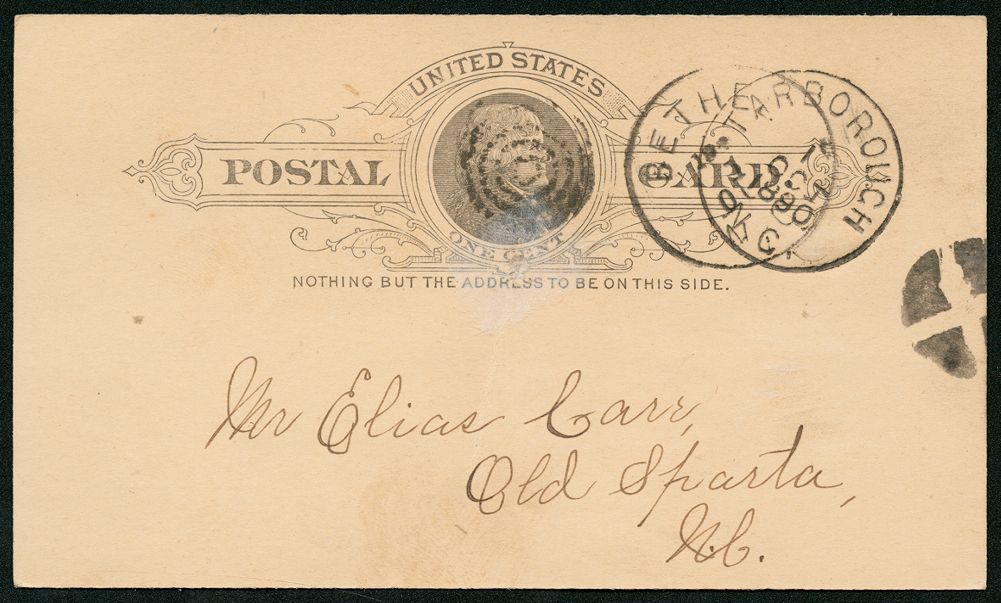 UNITED STATES
POSTAL CARD
ONE CENT
NOTHING BUT THE ADDRESS TO BE ON THIS SIDE.
BETHE
TARBOROUGH
Mr Elias Carr,
Old Sparta,
N.C.